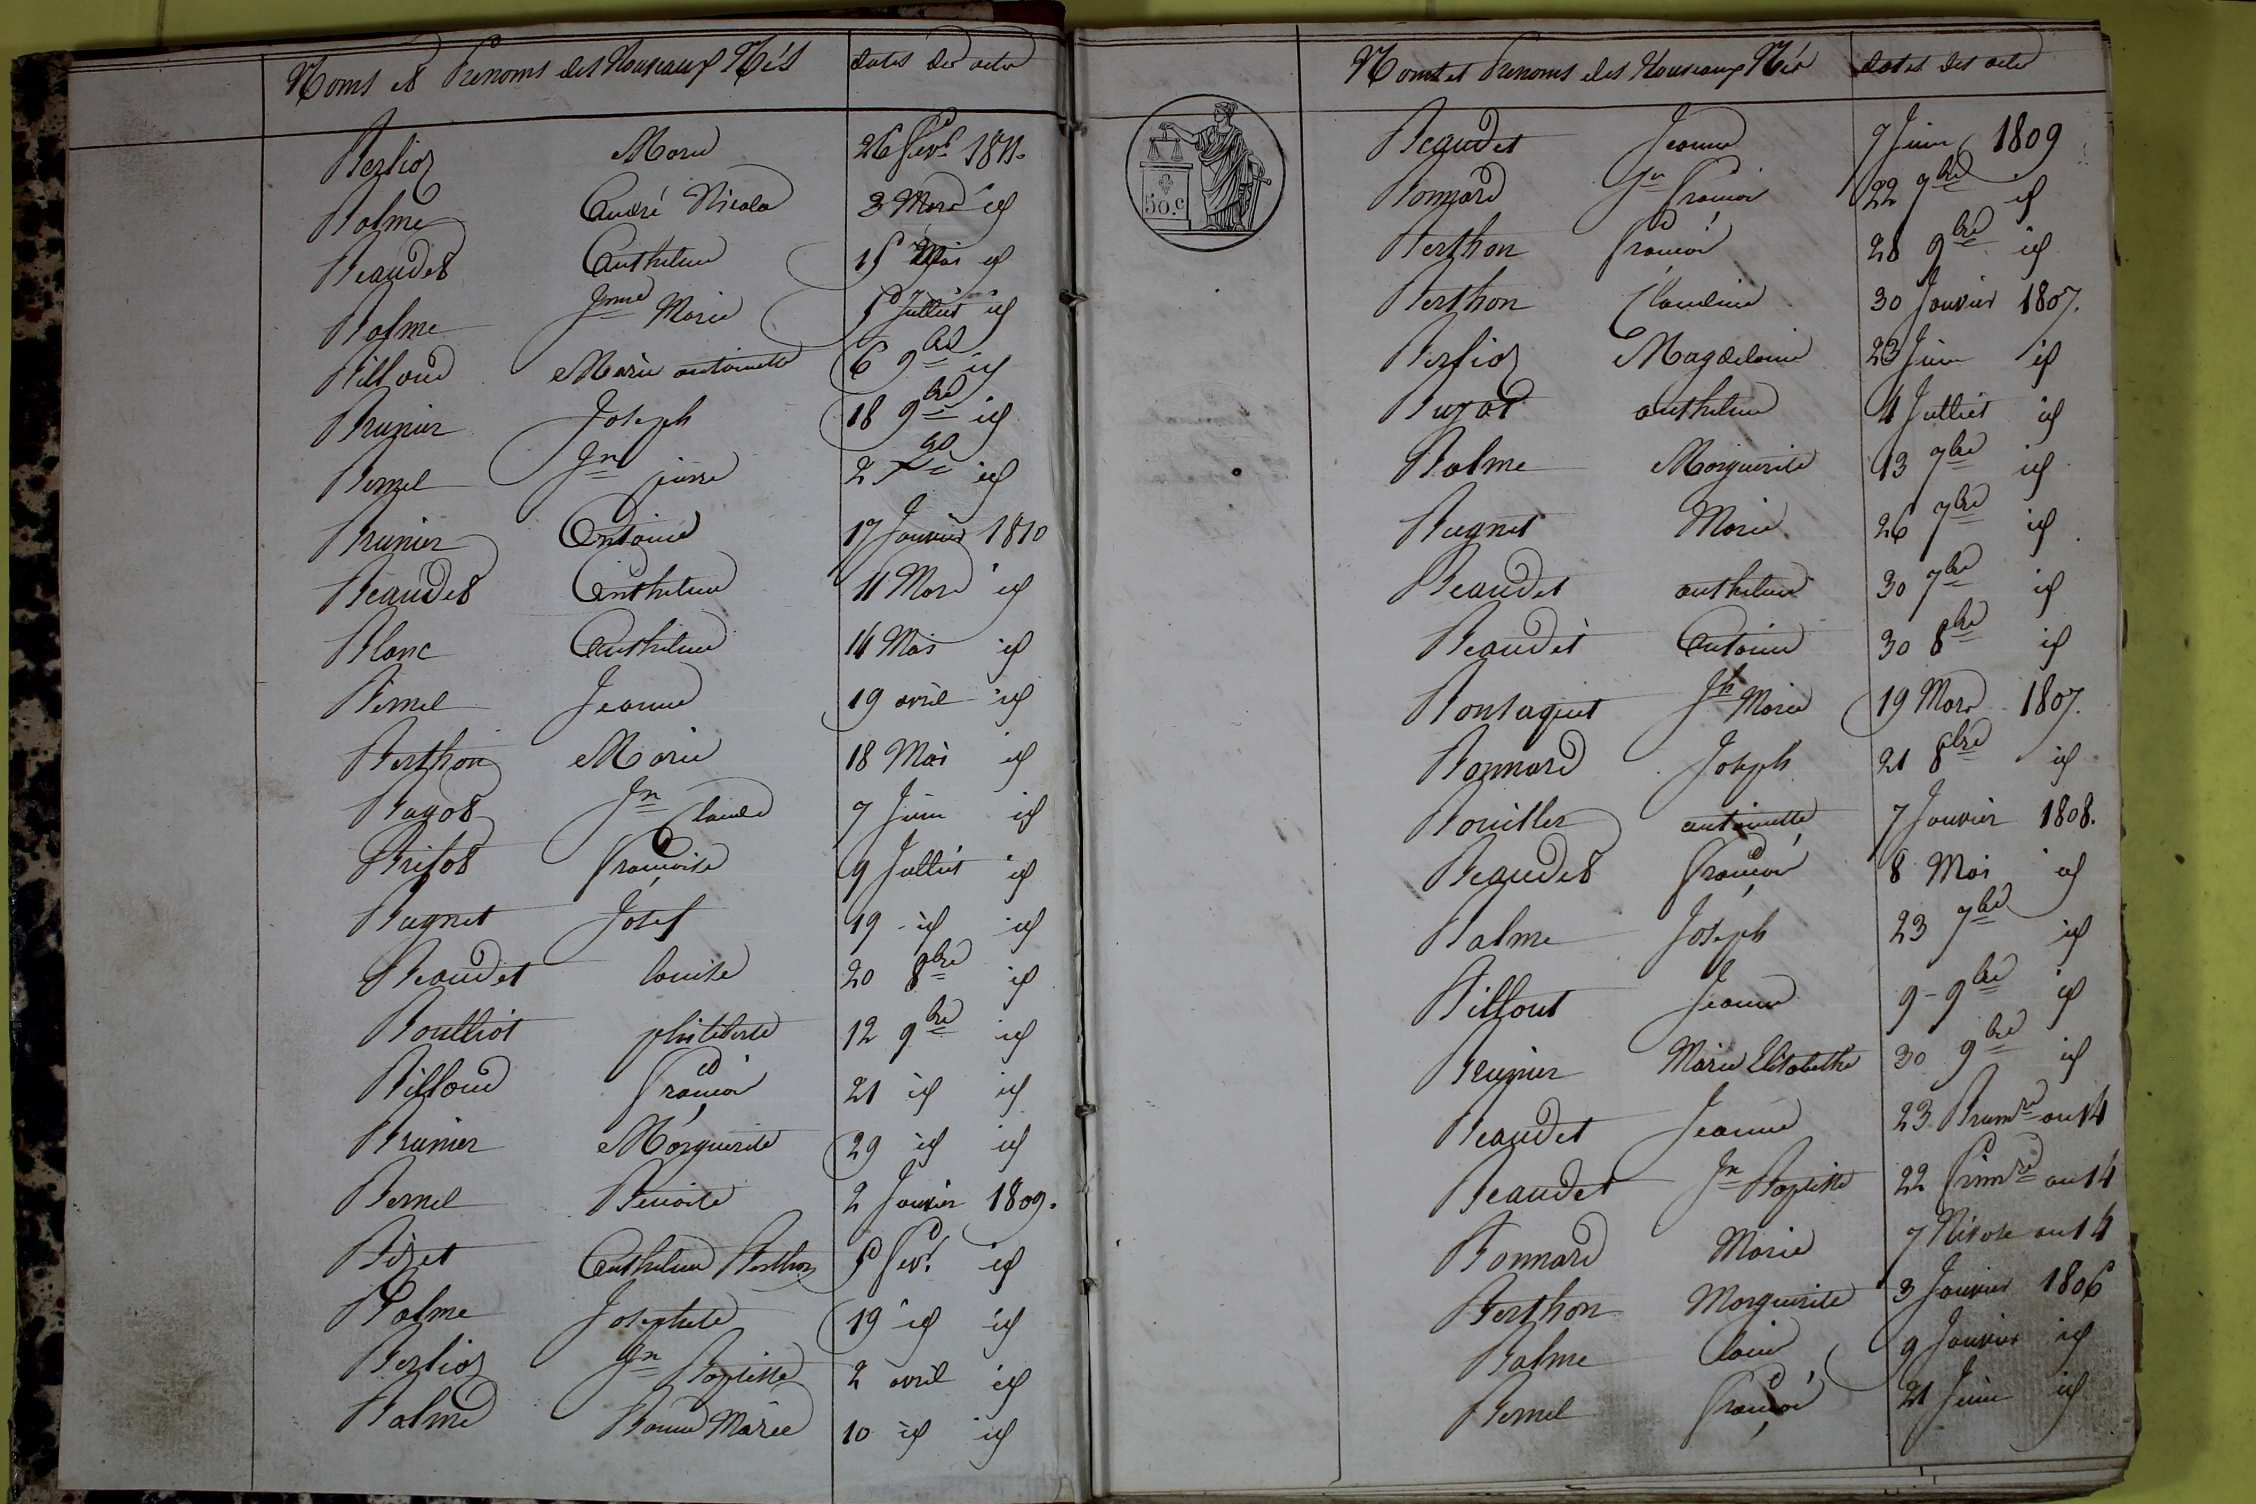 Noms et Prenoms des Nouveaux Nés dates des actes
Berlioz Marie 26 fevr. 1811.
Balme André Nicolas 3 Mars id
Beaudet Anthelme 15 Mai id
Balme Jnne Marie 5 Julliet id
Billoud Marie antoinette 6 9bre id
Brunier Joseph 18 9bre id
Bernel Jn pierre 2 id
Brunier Antoine 17 Janvier 1810
Beaudet Anthelme 11 Mars id
Blanc Anthelme 14 Mars id
Bernel Jeanne 19 avril id
Berthon Marie 18 Mai id
Jn Claude 7 Juin id
Françoise 9 Julliet id
Bugnet Josef 19 id id
Beaudet louise 20 8bre id
Boulliot philiberte 12 9bre id
Billoud François 21 id id
Brunier Marguerite 29 id id
Bernel Benoite 2 Janvier 1809.
Bizet Anthelme Berthon 5 fevr. id
Balme Josephte 19 id id
Berlioz Jn Baptiste 2 avril id
Balme Bonne Marie 10 id id
Noms et Prenoms des Nouveaux Nés dates des actes
50.c
Beaudet Jeanne 7 Juin 1809
Bonnard Jn François 22 9bre id
Berthon François 28 9bre id
Berthon Claudine 30 Janvier 1807.
Berlioz Magdelaine 23 Juin id
anthelme 4 Julliet id
Balme Marguerite 13 7bre id
Bugnet Marie 26 7bre id
Beaudet anthelme 30 7bre id
Beaudet Antoine 30 8bre id
Bontaquet Jh Marie 19 Mars 1807.
Bonnard Joseph 21 8bre id
Bouiller antoinette 7 Janvier 1808.
Beaudet François 8 Mai id
Balme Joseph 23 7bre id
Billout Jeanne 9 - 9bre id
Brunier Marie Elisabethe 30 9bre id
Beaudet Jeanne 23 Brumre an 14
Beaudet Jn Baptiste 22 frimre an 14
Bonnard Marie 7 Nivose an 14
Berthon Marguerite 3 Janvier 1806
Balme 9 Janvier id
Bernel François 21 Juin id